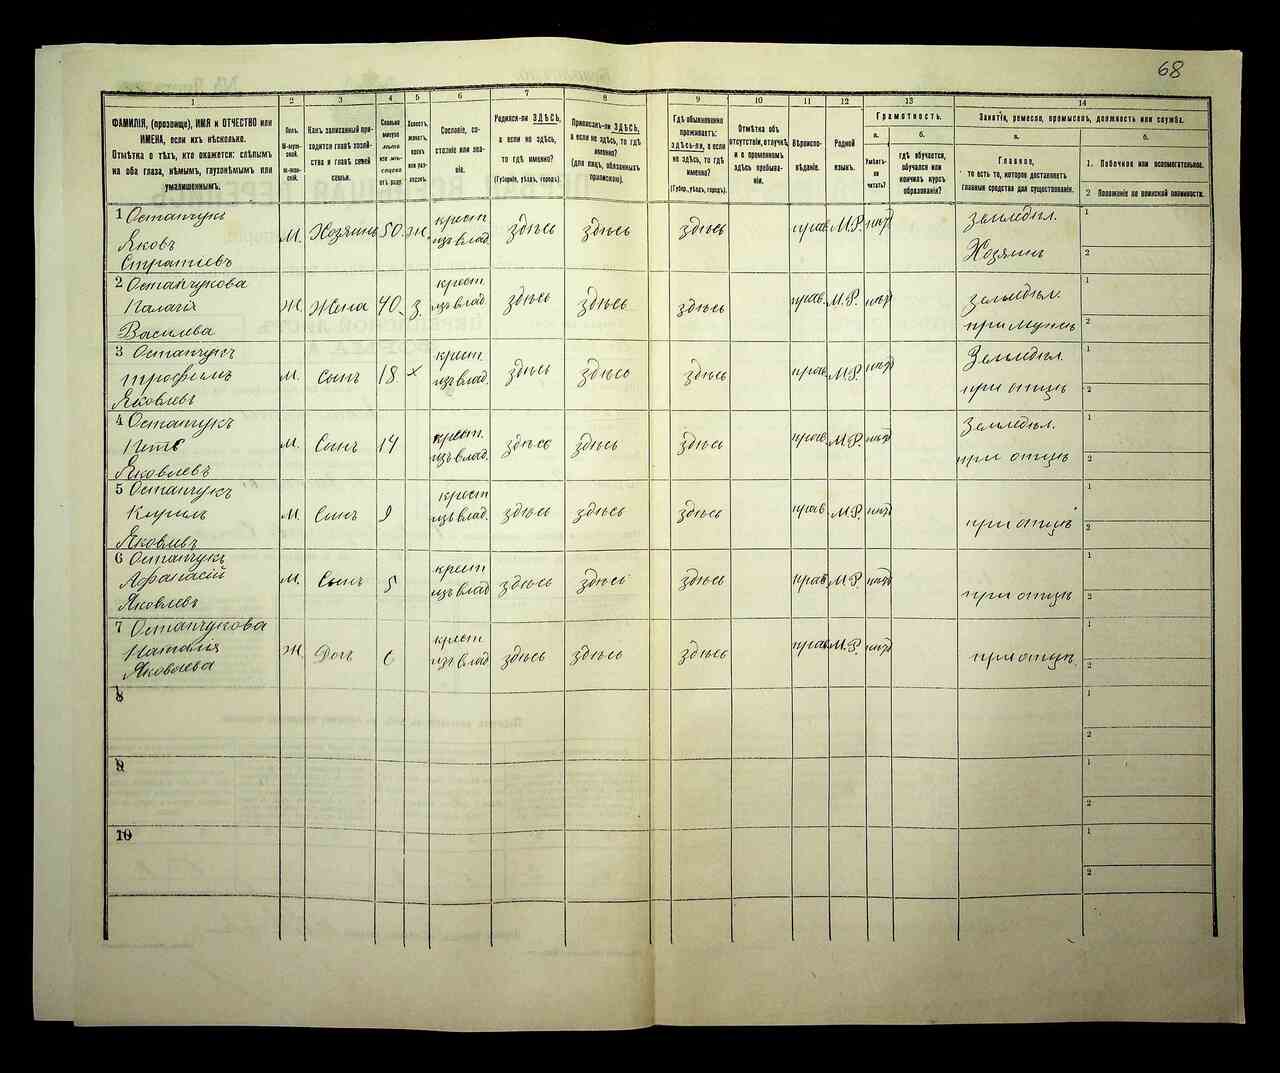 68
1 2 3 4 5 6 7 8 9 10 11 12 13 14
ФАМИЛІЯ, (прозвище), ИМЯ и ОТЧЕСТВО или ИМЕНА, если ихъ нѣсколько.
Отмѣтка о тѣхъ, кто окажется: слѣпымъ на оба глаза, нѣмымъ, глухонѣмымъ или умалишеннымъ.
Полъ.
М-муж-ской.
Ж-жен-скій.
Какъ записанный при-ходится главѣ хозяй-ства и главѣ своей семьи.
Сколько минуло лѣтъ или мѣ-сяцевъ отъ роду.
Холостъ, женатъ, вдовъ или раз-веденъ.
Сословіе, со-стояніе или зва-ніе.
Родился-ли ЗДѢСЬ, а если не здѣсь, то гдѣ именно?
(Губернія, уѣздъ, городъ).
Приписанъ-ли ЗДѢСЬ, а если не здѣсь, то гдѣ именно?
(для лицъ, обязанныхъ припискою).
Гдѣ обыкновенно проживаетъ: здѣсь-ли, а если не здѣсь, то гдѣ именно?
(Губер., уѣздъ, городъ).
Отмѣтка объ отсутствіи, отлучкѣ и о временномъ здѣсь пребыва-ніи.
Вѣроиспо-вѣданіе.
Родной языкъ.
Грамотность.
а.
Умѣетъ-ли читать?
б.
гдѣ обучается, обучался или кончилъ курсъ образованія?
Занятіе, ремесло, промыселъ, должность или служба.
а.
Главное,
то есть то, которое доставляетъ главныя средства для существованія.
б.
1. Побочное или вспомогательное.
2 Положеніе по воинской повинности.
1 Остапчукъ
Яковъ
Стратіевъ
М. Хозяинъ 50. ж. крест. изъ влад. здѣсь здѣсь здѣсь прав. М.Р. нѣтъ земледѣл.
Хозяинъ
1
2
2 Остапчукова
Палагія
Василева
Ж. Жена 40. з. крест. изъ влад. здѣсь здѣсь здѣсь прав. М.Р. нѣтъ земледѣл.
при мужѣ
1
2
3 Остапчукъ
трофимъ
Яковлевъ
М. Сынъ 18 х крест. изъ влад. здѣсь здѣсь здѣсь прав. М.Р. нѣтъ Земледѣл.
при отцѣ
1
2
4 Остапчукъ
Яковлевъ
М. Сынъ 14 крест. изъ влад. здѣсь здѣсь здѣсь прав. М.Р. нѣтъ Земледѣл.
при отцѣ
1
2
5 Остапчукъ
Кирилъ
Яковлевъ
М. Сынъ 9 крест изъ влад. здѣсь здѣсь здѣсь прав. М.Р. нѣтъ
при отцѣ
1
2
6 Остапчукъ
Афанасій
Яковлевъ
М. Сынъ 5 крест изъ влад здѣсь здѣсь здѣсь прав. М.Р. нѣтъ
при отцѣ
1
2
7 Остапчукова
Наталія
Яковлева
Ж. Доч. 6 крест изъ влад здѣсь здѣсь здѣсь прав. М.Р. нѣтъ
при отцѣ.
1
2
8
1
2
9
1
2
10
1
2